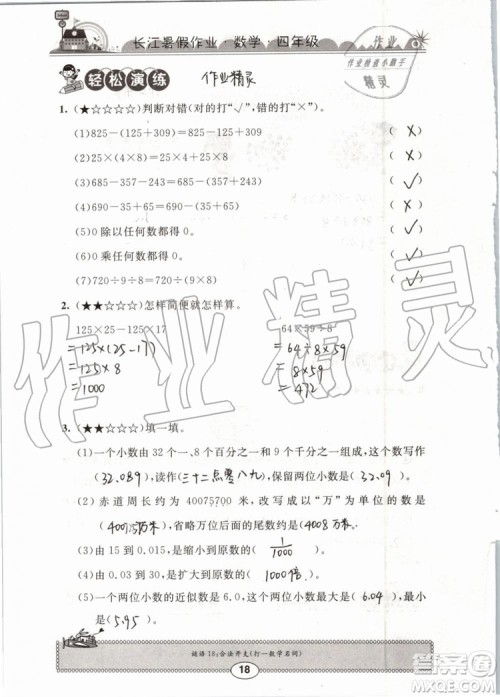 长江暑假作业·数学·四年级
作业
精灵
轻松演练 作业精灵
1. (★☆☆☆☆)判断对错(对的打“√”,错的打“×”)。
(1)825-(125+309)=825-125+309 (×)
(2)25×(4×8)=25×4+25×8 (×)
(3)685-357-243=685-(357+243) (√)
(4)690-35+65=690-(35+65) (×)
(5)0除以任何数都得0。
(6)0乘任何数都得0。 (√)
(7)720÷9÷8=720÷(9×8) (√)
2. (★★☆☆☆)怎样简便就怎样算。
125×25-125×17 64×59÷8
=125×(25-17) =64÷8×59
=125×8 =8×59
=1000 =472
3. (★★☆☆☆)填一填。
(1)一个小数由32个一、8个百分之一和9个千分之一组成,这个数写作
(32.089),读作(三十二点零八九),保留两位小数是(32.09)。
(2)赤道周长约为40075700米,改写成以“万”为单位的数是
(4007.57万米),省略万位后面的尾数约是(4008万米)。
(3)由15到0.015,是缩小到原数的(1/1000)。
(4)由0.03到30,是扩大到原数的(1000倍)。
(5)一个两位小数的近似数是6.0,这个两位小数最大是(6.04),最小是
(5.95)。
谜语18:合法开支(打一数学名词)
18
答案圈
MXQE.COM
作业精灵